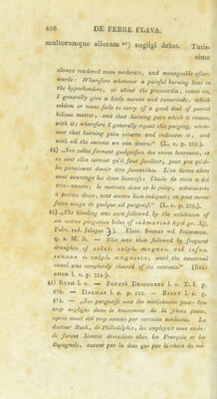 408 DE FEBRE FLAVA.
multorumque aliorum negligi debet. Tutis-
sime
always rendered more moderate, and manageable after-
wards: Wherefore whenever a painful burning heat in
the hypochonders, or about the praecordia, comes on,
I generally give a little manna and tamarinds, which
seldom or never fails to carry off a good deal of putrid
bilious matter, and that burning pain which it causes,
with it; wherefore I generally repeat this purging, when-
ever that burning pain returns and indicates it, and
with all the success we can desire" (L. c. p. 162.).
44) „Les selles forment quelquefois des crises heureuses, et
ce sont elles surtout qu'il faut faciliter, pour peu qu'el-
les paraissent devoir être favorables. L'on devra alors
tirer avantage les doux laxatifs. L'huile de ricin à
très-vineuses; la manne dans et le jalap, administrés
à petites doses, sont encore bien indiqués; on peut même
faire usage de quelque sel purgatif." (L. c. p. 275.).
45) „The bleeding was soon followed by the exhibition of
an active purgative bolus of calomel hyd. gr. Xij.
Pulv. rad. Jalapae ʒj. . Elect. Sennae vel Scammon.
q. s. M. B. — This was then followed by frequent
draughts of solut. sulph. magnes. vel infus.
sennae c. sulph. magnesia, until the intestinal
canal was completely cleared of its contents"
l. c. p. 354.).
46) Rush l. c. — Pouppé Desportes l. c. T. I. p.
— Dalmas l. c. p. — Bally l. c. p.
574. — „Les purgatifs sont des médicamens peut-être
trop négligés dans le traitement de la fièvre jaune,
après avoir été trop vantés par certains medecins. Le
docteur Rush, de Philadelphie, les employait avec excès:
ils furent bientôt abandonnés chez les Français et les
Espagnols, autant par la dose que par le choix de re-